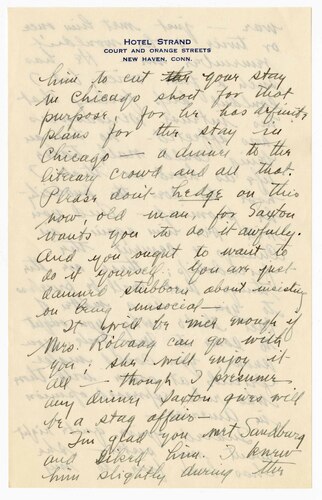 HOTEL STRAND
COURT AND ORANGE STREETS
NEW HAVEN, CONN.
him to cut the your stay
in Chicago short for that
purpose, for he has definite
plans for the stay in
Chicago — a dinner to the
literary crowd and all that.
Please don't hedge on this
now, old man, for Saxton
wants you to do it awfully.
And you ought to want to
do it yourself; you are just
damned stubborn about insisting
on being unsocial—
It will be nice enough if
Mrs. Rölvaag can go with
you; she will enjoy it
all — though I presume
any dinner Saxton gives will
be a stag affair—
I'm glad you met Sandburg
and liked him. I knew
him slightly during the